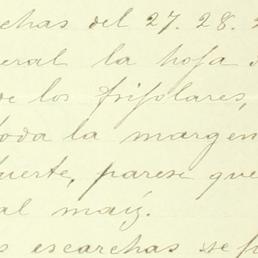 chas del 27. 28. 2
eral la hoja
de los frijolares,
toda la margen
uerte, parese que
al maiz.
s escarchas se